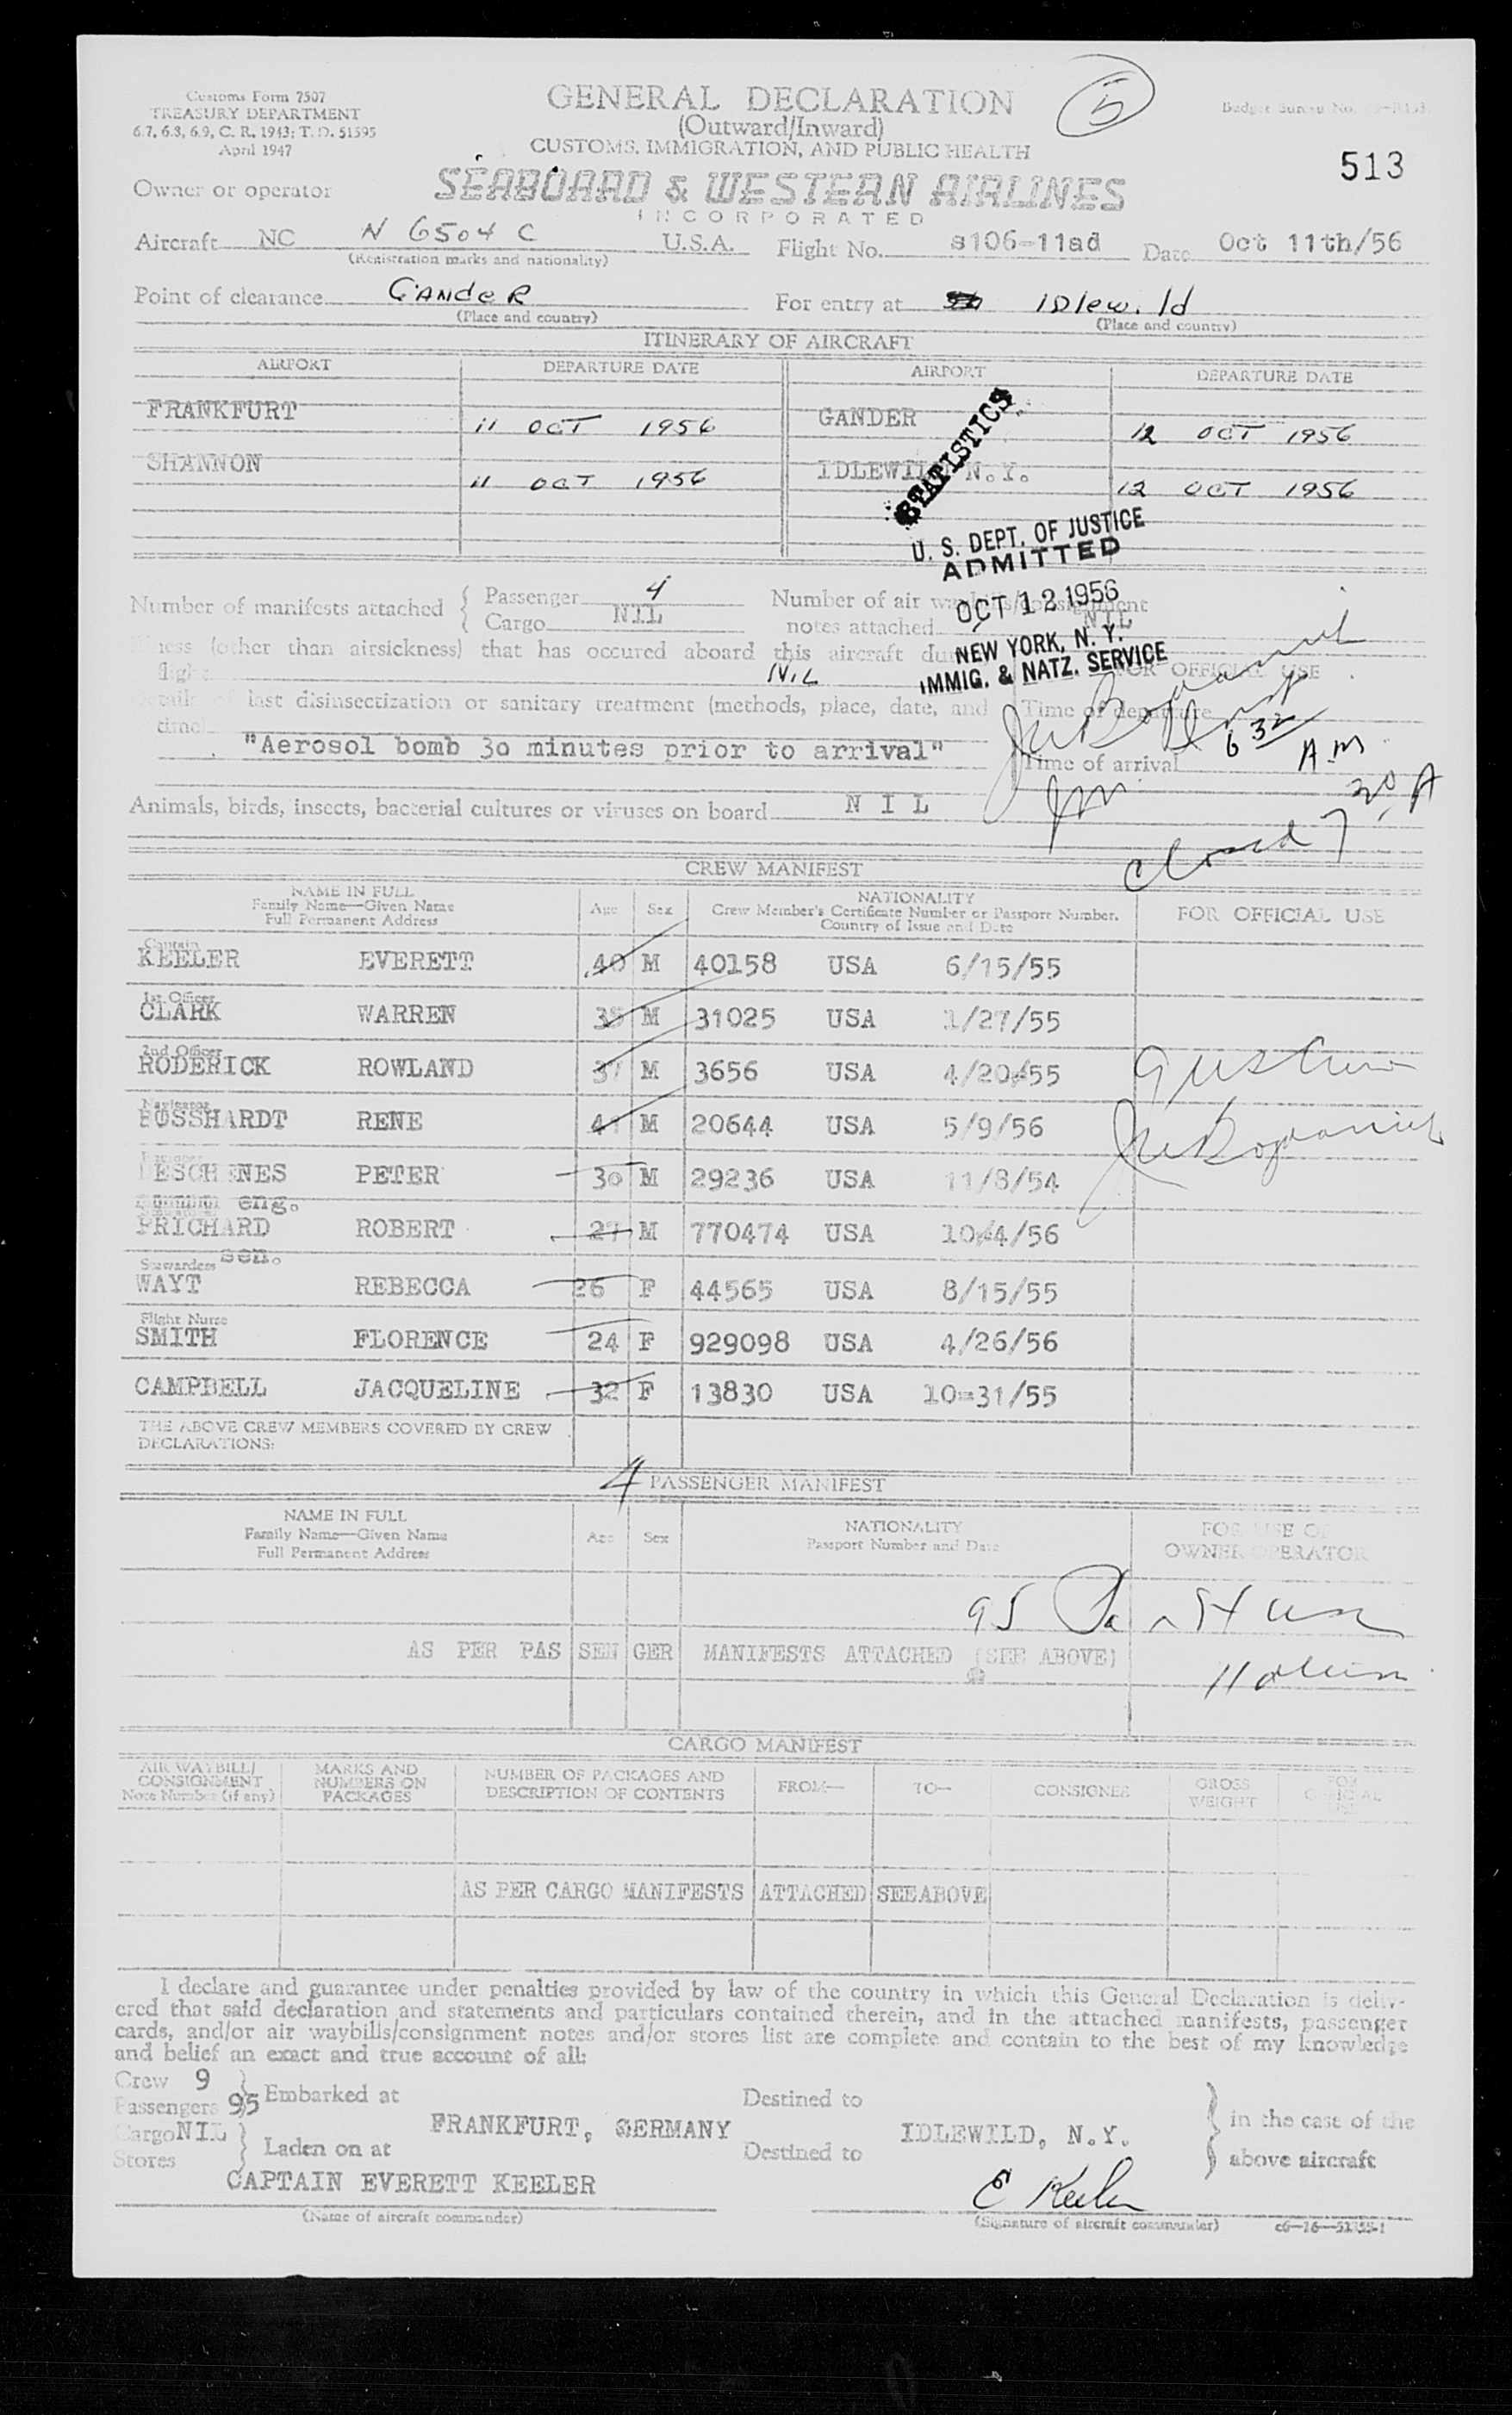 Customs Form 7507
TREASURY DEPARTMENT
6.7, 6.8, 6.9, C. R. 1943; T. D. 51595
April 1947
GENERAL DECLARATION
(Outward/Inward)
CUSTOMS, IMMIGRATION, AND PUBLIC HEALTH
5
Budget Bureau No.
513
Owner or operator
SEABOARD & WESTERN AIRLINES
INCORPORATED
Aircraft NC N 6504 C U.S.A. Flight No. s106-11ad Date Oct 11th/56
(Registration marks and nationality)
Point of clearance GANDER For entry at IDlewild
(Place and country) (Place and country)
ITINERARY OF AIRCRAFT
AIRPORT DEPARTURE DATE AIRPORT DEPARTURE DATE
FRANKFURT 11 OCT 1956 GANDER 12 OCT 1956
SHANNON 11 OCT 1956 IDLEWILD N.Y. 12 OCT 1956
STATISTICS
U. S. DEPT. OF JUSTICE
ADMITTED
OCT 12 1956
NEW YORK, N. Y.
IMMIG. & NATZ. SERVICE
Number of manifests attached { Passenger 4 Number of air waybills/consignment
Cargo NIL notes attached NIL
Illness (other than airsickness) that has occured aboard this aircraft during
flight NIL FOR OFFICIAL USE
Details of last disinsectization or sanitary treatment (methods, place, date, and
time) Time of departure
"Aerosol bomb 30 minutes prior to arrival"
Time of arrival 6 32 A.M
Animals, birds, insects, bacterial cultures or viruses on board N I L
closed 7 30 A
CREW MANIFEST
NAME IN FULL
Family Name—Given Name
Full Permanent Address
Age Sex
NATIONALITY
Crew Member's Certificate Number or Passport Number.
Country of Issue and Date
FOR OFFICIAL USE
Captain
KEELER EVERETT 40 M 40158 USA 6/15/55
1st Officer
CLARK WARREN 38 M 31025 USA 1/27/55
2nd Officer
RODERICK ROWLAND 37 M 3656 USA 4/20/55
Navigator
BOSSHARDT RENE 41 M 20644 USA 5/9/56
DESCHENES PETER 30 M 29236 USA 11/8/54
eng.
PRICHARD ROBERT 27 M 770474 USA 10/4/56
Stewardess sen.
WAYT REBECCA 26 F 44565 USA 8/15/55
Flight Nurse
SMITH FLORENCE 24 F 929098 USA 4/26/56
CAMPBELL JACQUELINE 32 F 13830 USA 10-31/55
THE ABOVE CREW MEMBERS COVERED BY CREW
DECLARATIONS:
4 PASSENGER MANIFEST
NAME IN FULL
Family Name—Given Name
Full Permanent Address
Age Sex
NATIONALITY
Passport Number and Date
FOR USE OF
OWNER OPERATOR
95
AS PER PASSENGER MANIFESTS ATTACHED (SEE ABOVE)
CARGO MANIFEST
AIR WAYBILL/
CONSIGNMENT
Note Number (if any)
MARKS AND
NUMBERS ON
PACKAGES
NUMBER OF PACKAGES AND
DESCRIPTION OF CONTENTS
FROM— TO— CONSIGNEE
GROSS
WEIGHT
FOR
OFFICIAL
USE
AS PER CARGO MANIFESTS ATTACHED SEE ABOVE
I declare and guarantee under penalties provided by law of the country in which this General Declaration is deliv-
ered that said declaration and statements and particulars contained therein, and in the attached manifests, passenger
cards, and/or air waybills/consignment notes and/or stores list are complete and contain to the best of my knowledge
and belief an exact and true account of all:
Crew 9
Passengers 95 } Embarked at Destined to
FRANKFURT, GERMANY IDLEWILD, N.Y. in the case of the
Cargo NIL
Stores } Laden on at Destined to above aircraft
CAPTAIN EVERETT KEELER E Keeler
(Name of aircraft commander) (Signature of aircraft commander)